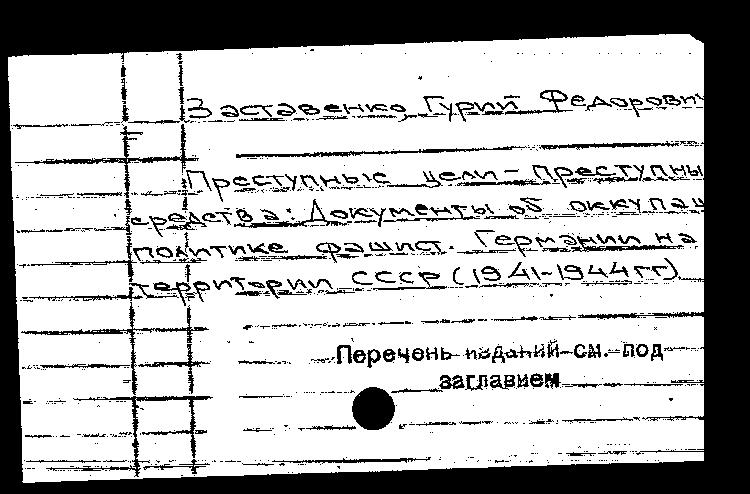 Заставенко, Гурий Федорович
Преступные цели - преступны
средства: Документы об оккупац
политике фашист. Германии на
территории СССР (1941-1944 гг)
Перечень изданий см. под
заглавием